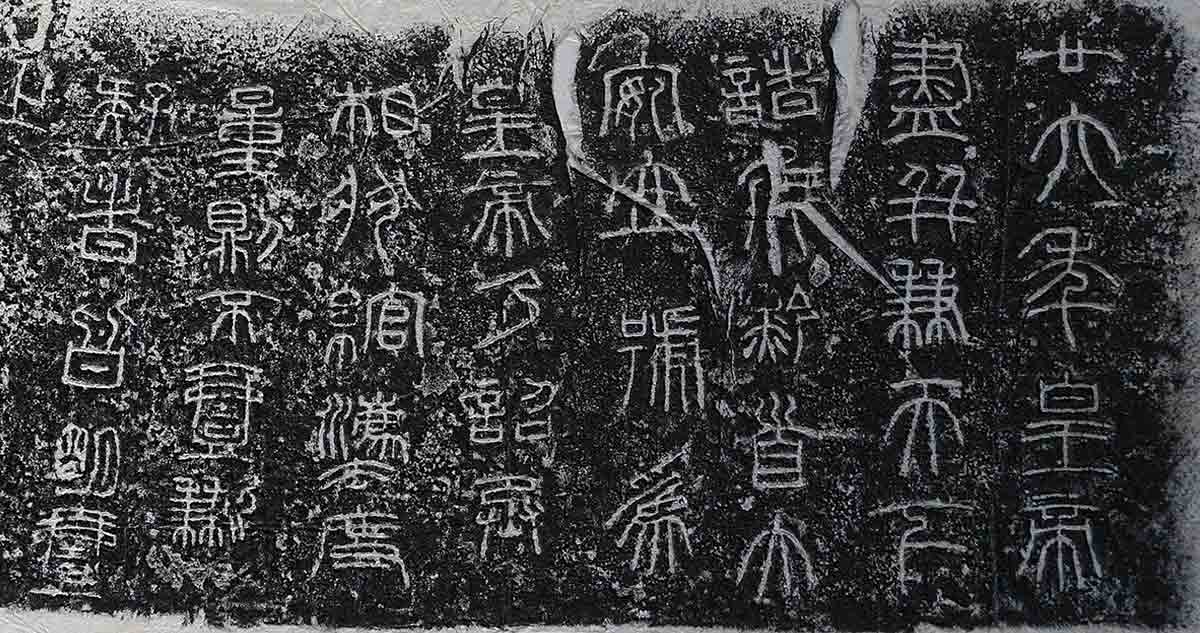 廿六年皇帝
盡并兼天下
諸侯黔首大
安立號為
皇帝乃詔丞
相狀綰灋度
量則不壹歉
疑者皆明壹